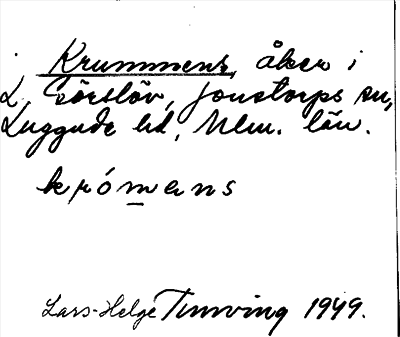 Krummens, åker i
L. Görslöv, Jonstorps sn,
Luggude hd, Mlm. län.
krómens
Lars-Helge Tunving 1949.